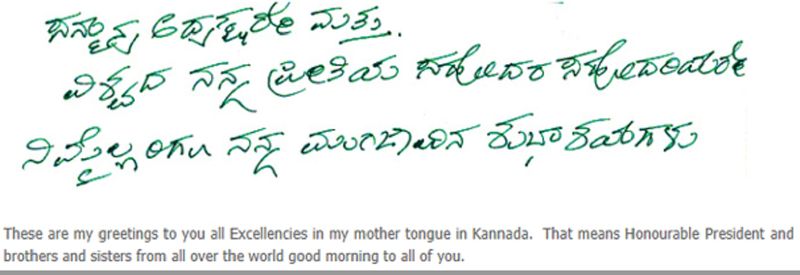 ಸನ್ಮಾನ್ಯ ಅಧ್ಯಕ್ಷರೇ ಮತ್ತು.
ವಿಶ್ವದ ನನ್ನ ಪ್ರೀತಿಯ ಸಹೋದರ ಸಹೋದರಿಯರೇ
ನಿಮ್ಮೆಲ್ಲರಿಗೂ ನನ್ನ ಮುಂಜಾನಿನ ಶುಭಾಶಯಗಳು
These are my greetings to you all Excellencies in my mother tongue in Kannada. That means Honourable President and
brothers and sisters from all over the world good morning to all of you.